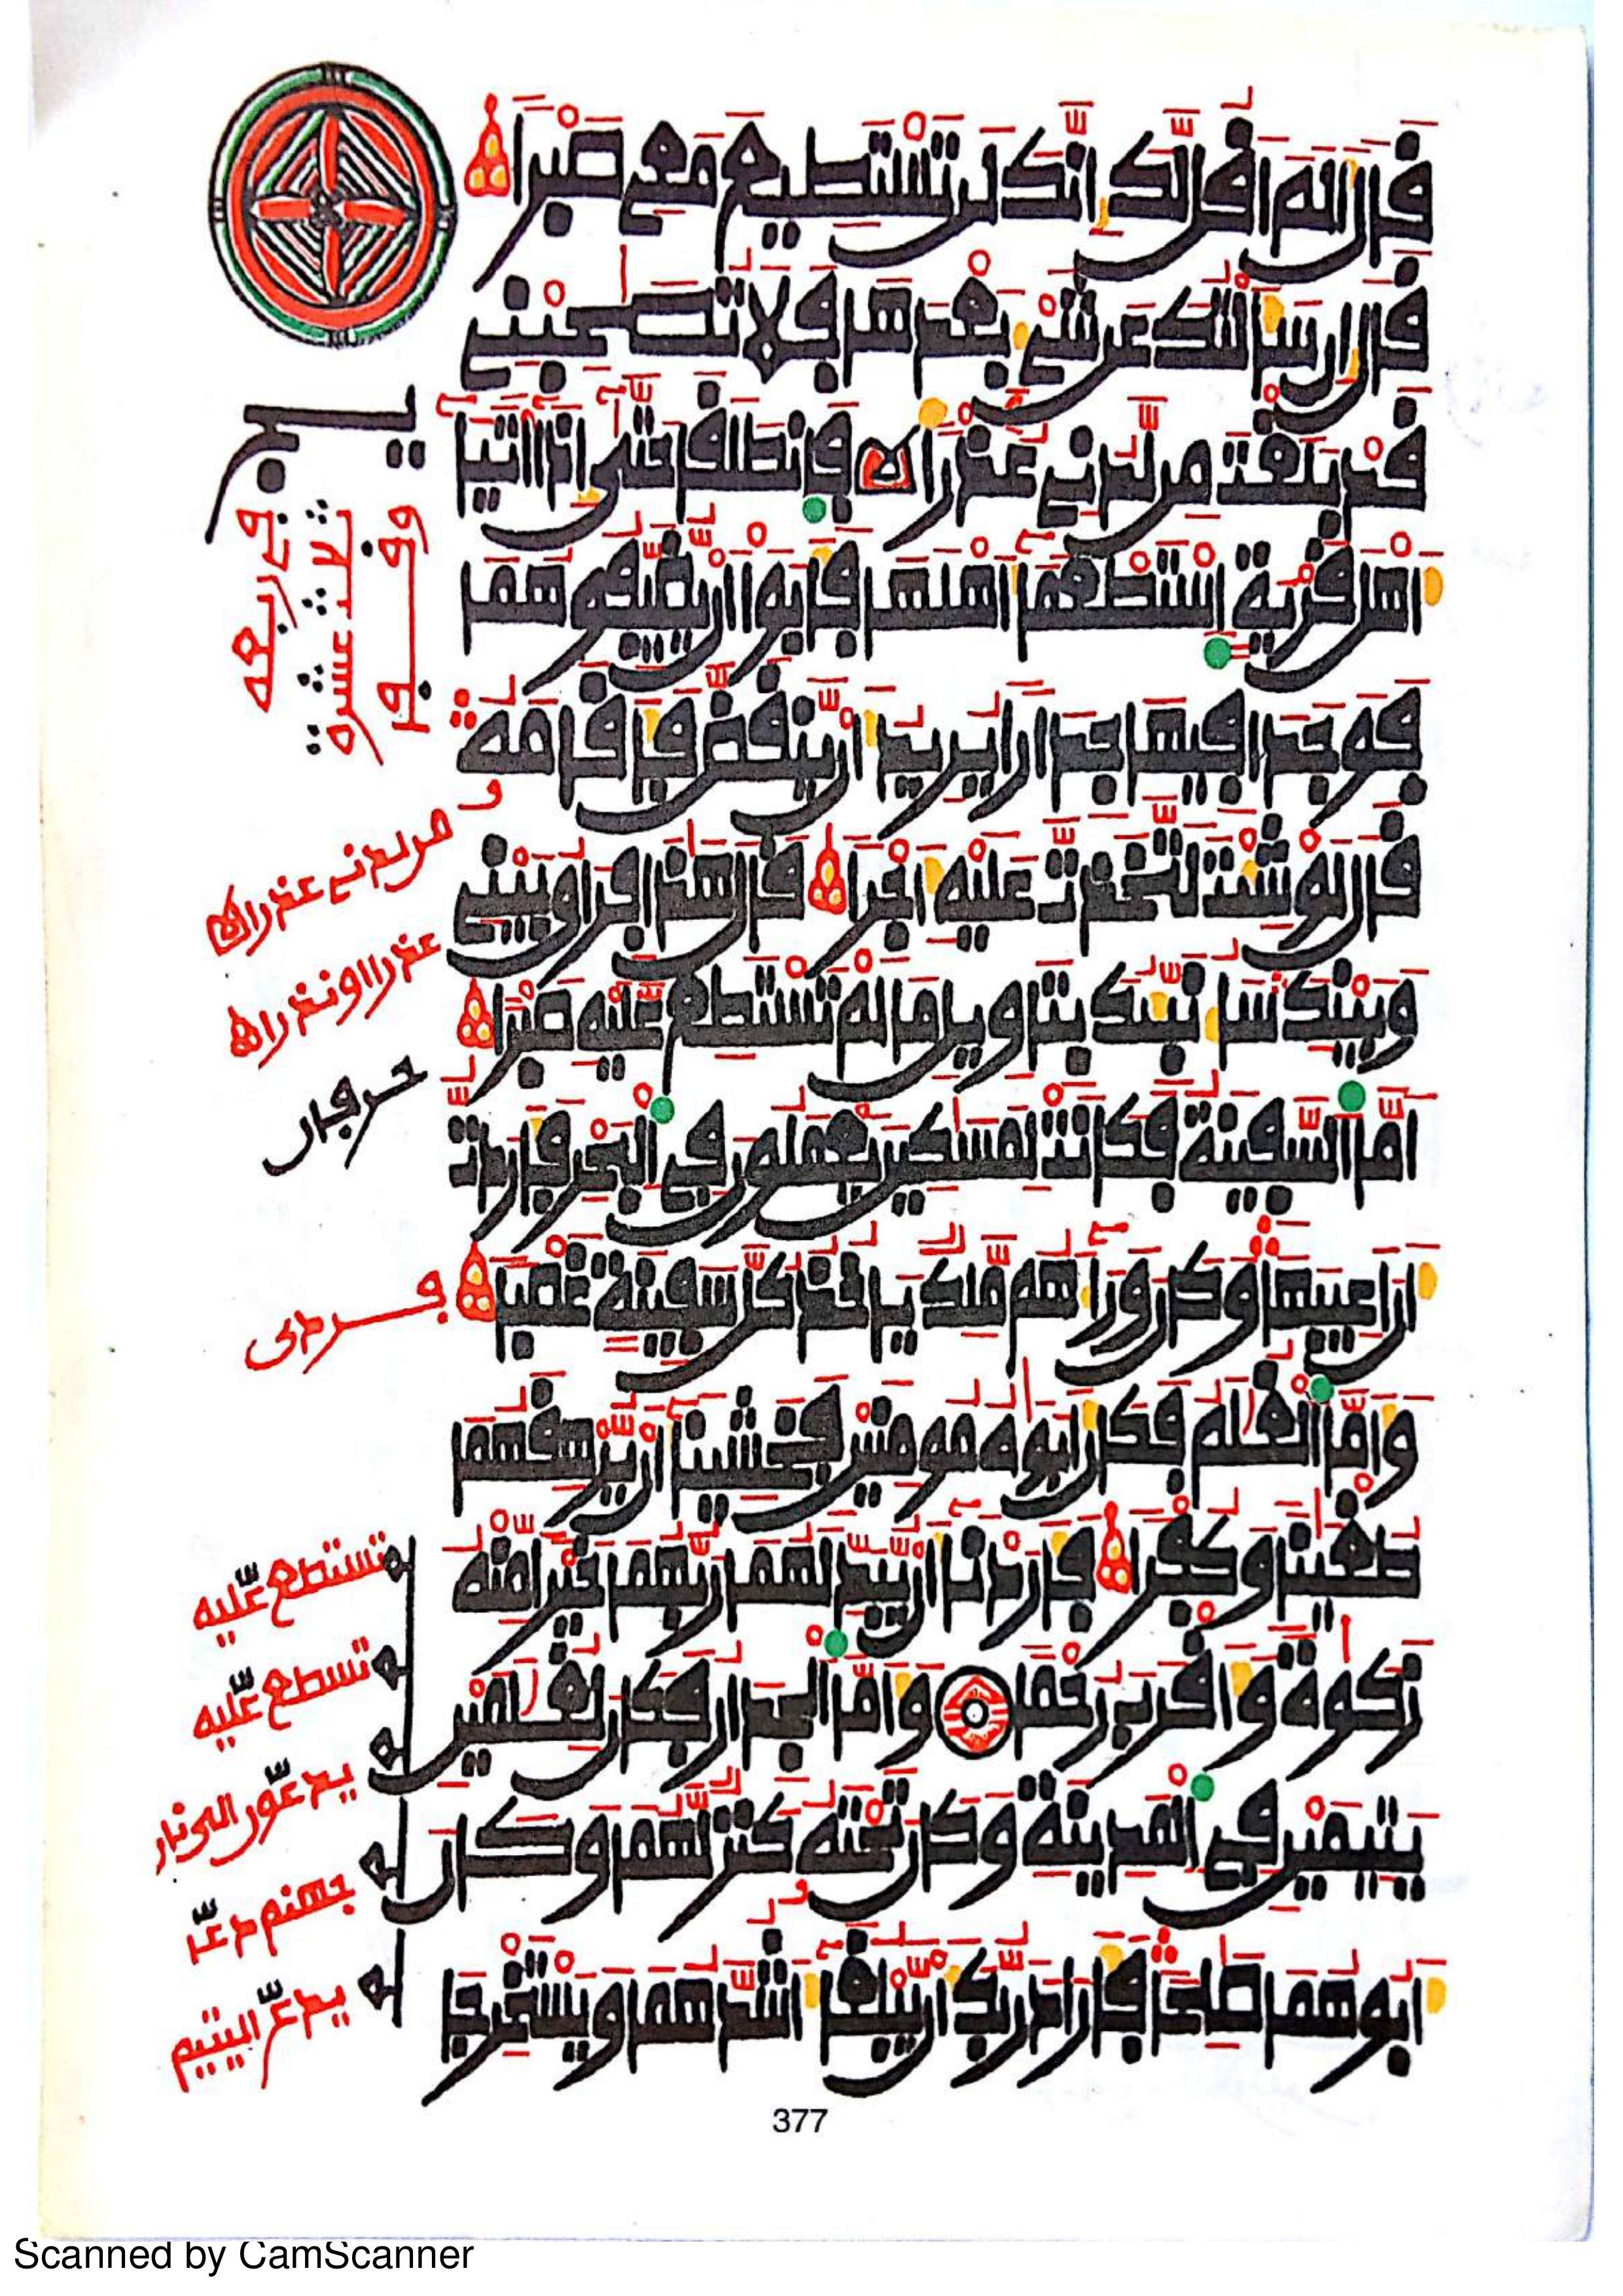 قَالَ أَلَمْ أَقُل لَّكَ إِنَّكَ لَن تَسْتَطِيعَ مَعِي صَبْرًا
قَالَ إِن سَأَلْتُكَ عَن شَيْءٍ بَعْدَهَا فَلَا تُصَٰحِبْنِي
قَدْ بَلَغْتَ مِن لَّدُنِي عُذْرًا فَانطَلَقَا حَتَّىٰ إِذَا أَتَيَا
أَهْلَ قَرْيَةٍ اسْتَطْعَمَا أَهْلَهَا فَأَبَوْا أَن يُضَيِّفُوهُمَا
فَوَجَدَا فِيهَا جِدَارًا يُرِيدُ أَن يَنقَضَّ فَأَقَامَهُ
قَالَ لَوْ شِئْتَ لَتَّخَذْتَ عَلَيْهِ أَجْرًا قَالَ هَٰذَا فِرَاقُ بَيْنِي
وَبَيْنِكَ سَأُنَبِّئُكَ بِتَأْوِيلِ مَا لَمْ تَسْتَطِع عَّلَيْهِ صَبْرًا
أَمَّا السَّفِينَةُ فَكَانَتْ لِمَسَٰكِينَ يَعْمَلُونَ فِي الْبَحْرِ فَأَرَدتُّ
أَنْ أَعِيبَهَا وَكَانَ وَرَاءَهُم مَّلِكٌ يَأْخُذُ كُلَّ سَفِينَةٍ غَصْبًا
وَأَمَّا الْغُلَٰمُ فَكَانَ أَبَوَٰهُ مُومِنَيْنِ فَخَشِينَا أَن يُرْهِقَهُمَا
طُغْيَٰنًا وَكُفْرًا فَأَرَدْنَا أَن يُبَدِّلَهُمَا رَبُّهُمَا خَيْرًا مِّنْهُ
زَكَوٰةً وَأَقْرَبَ رُحْمًا وَأَمَّا الْجِدَارُ فَكَانَ لِغُلَٰمَيْنِ
يَتِيمَيْنِ فِي الْمَدِينَةِ وَكَانَ تَحْتَهُ كَنزٌ لَّهُمَا وَكَانَ
أَبُوهُمَا صَٰلِحًا فَأَرَادَ رَبُّكَ أَن يَبْلُغَا أَشُدَّهُمَا وَيَسْتَخْرِجَا
من لدني عذرا
عذرا او نذرا
تستطع عّليه
تسطع عّليه
يدعّون الى نار
جهنم دعّا
يدعّ اليتيم
377
Scanned by CamScanner